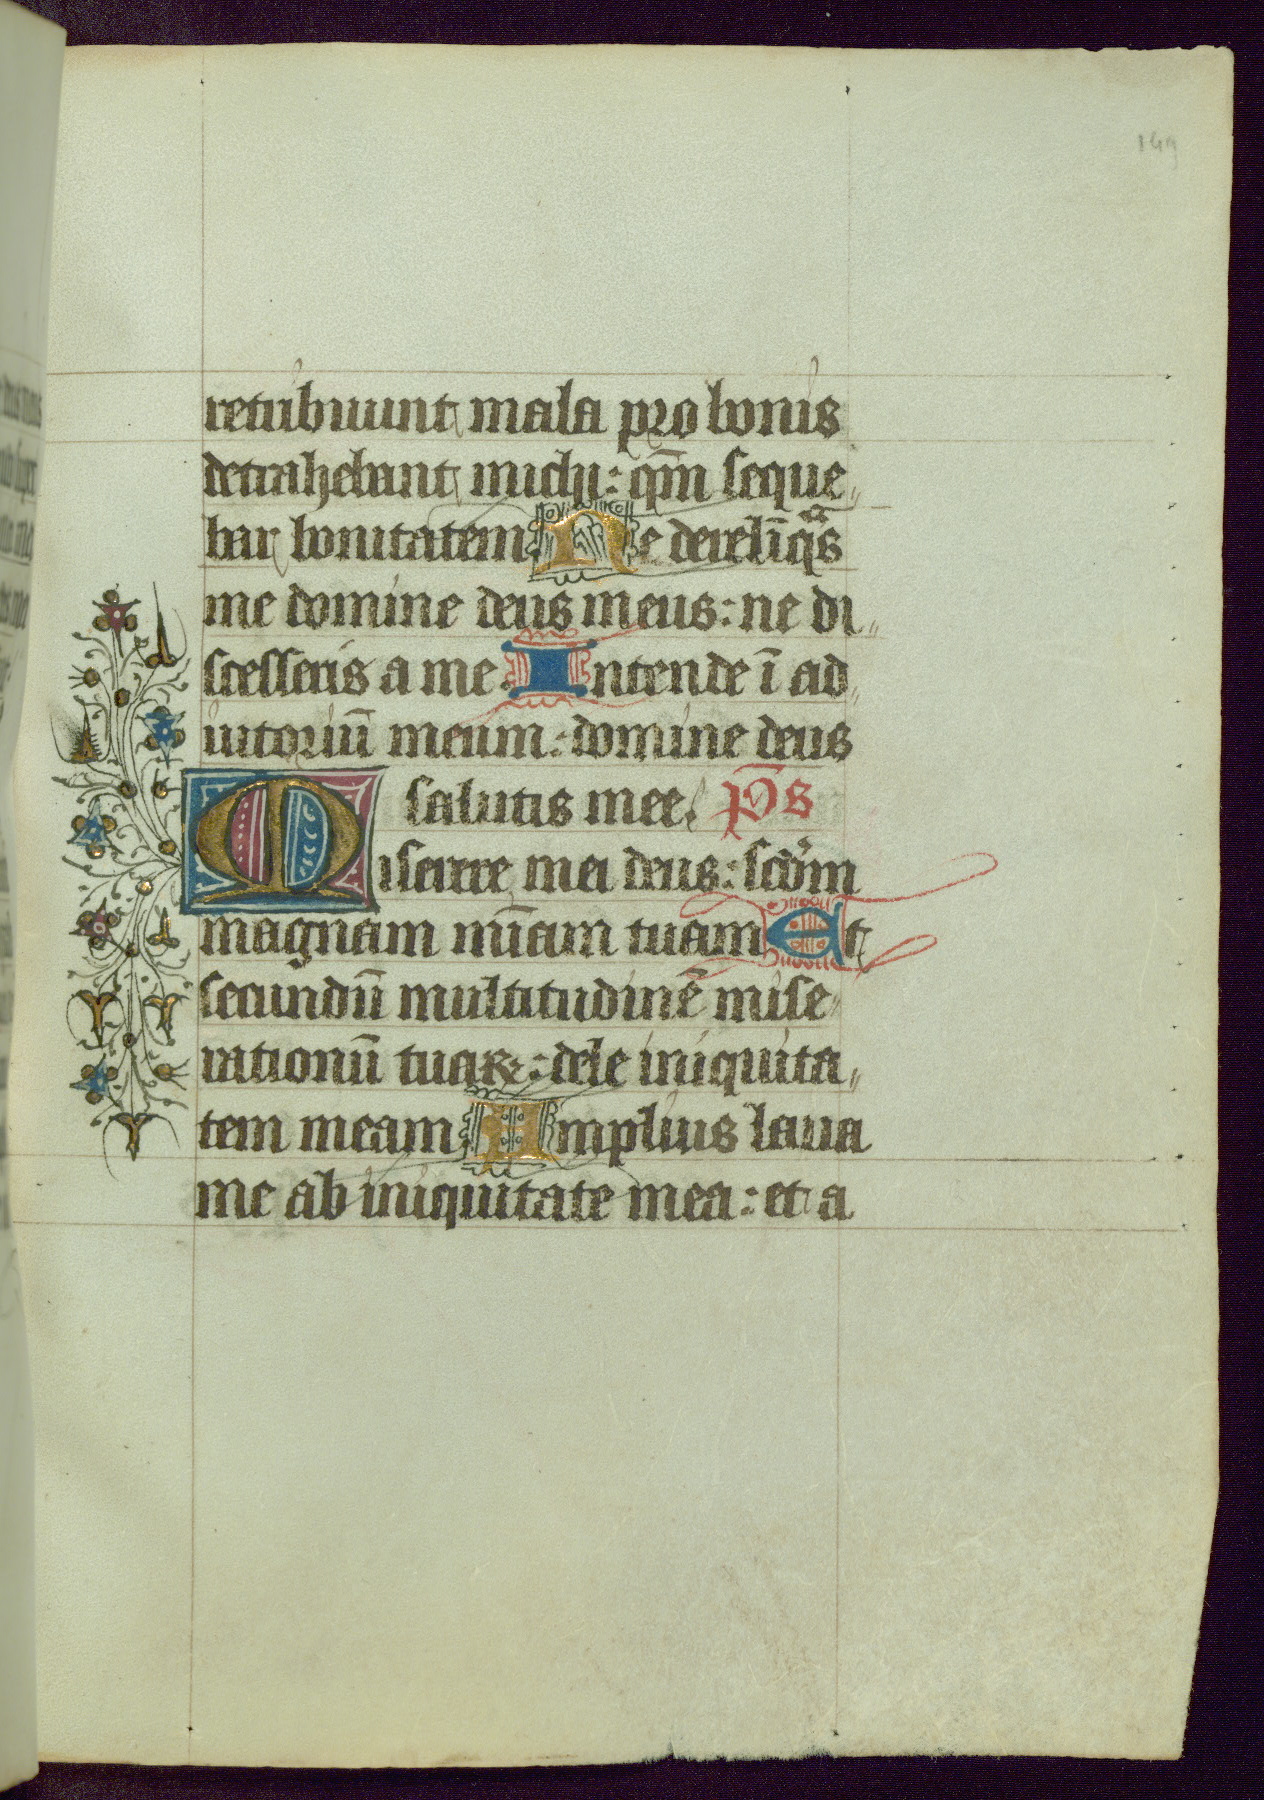 149
retribuunt mala pro bonis
detrahebant michi: qm̄ seque„
bar bonitatem Ne derelīqᵃs
me domine deus meus: ne di„
scesseris a me. Intende ī ad„
iutoriū meum: domine deus
salutis mee. p̄s
Miserere mei deus: scd̄m
magnam mīam tuam Et
secundū multitudinē mise„
rationū tuaꝝ: dele iniquita„
tem meam Amplius laua
me ab iniquitate mea: et a